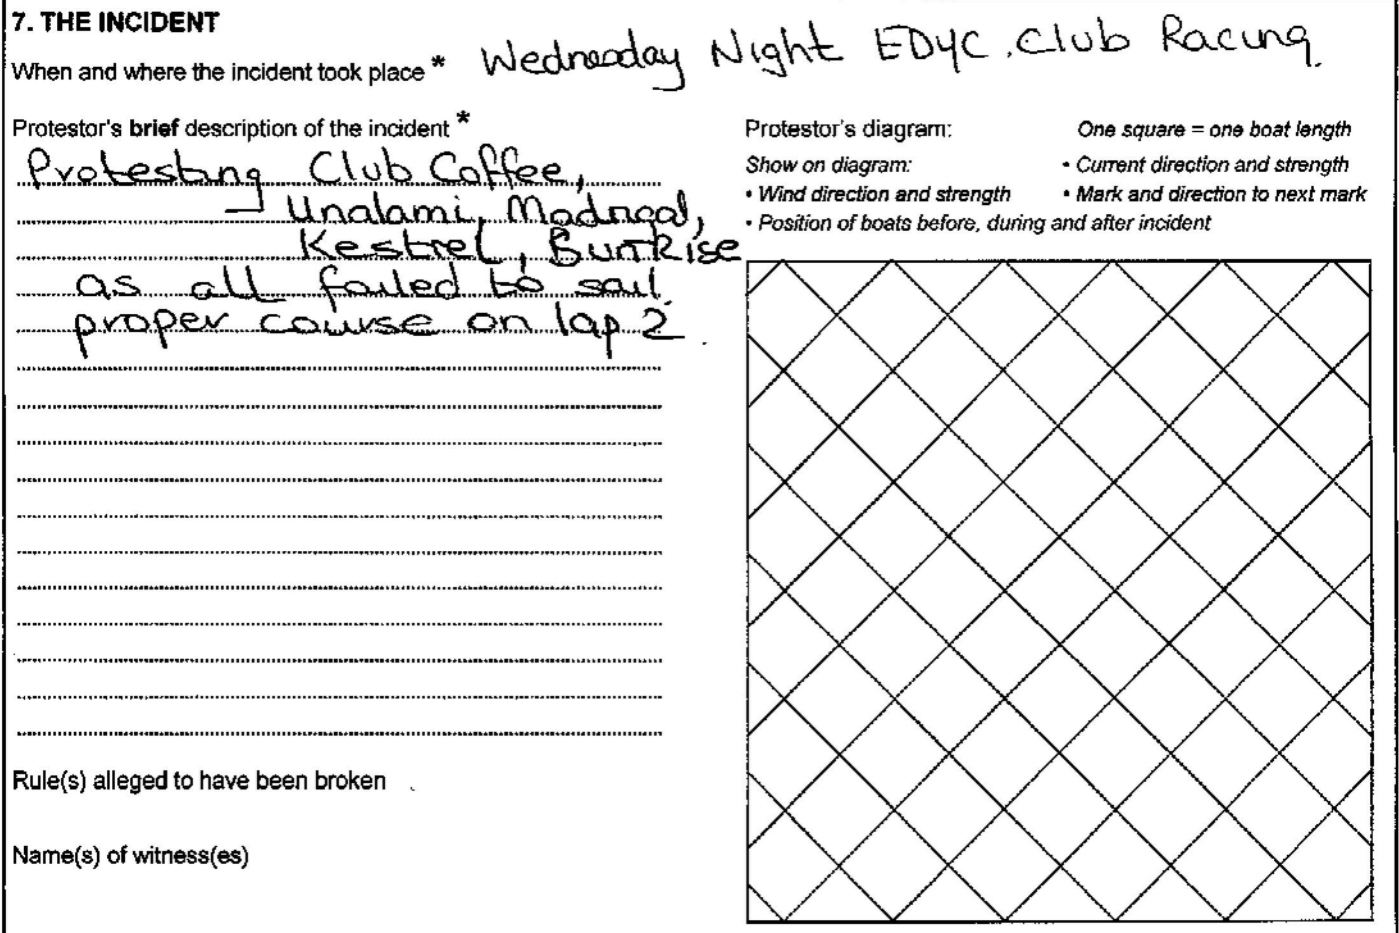 7. THE INCIDENT
When and where the incident took place * Wednesday Night EDYC Club Racing.
Protestor's brief description of the incident *
Protesting Club Coffee,
Unalami, Madrigal,
Kestrel, BurtRise
as all failed to sail
proper course on lap 2.
Rule(s) alleged to have been broken
Name(s) of witness(es)
Protestor's diagram: One square = one boat length
Show on diagram: • Current direction and strength
• Wind direction and strength • Mark and direction to next mark
• Position of boats before, during and after incident